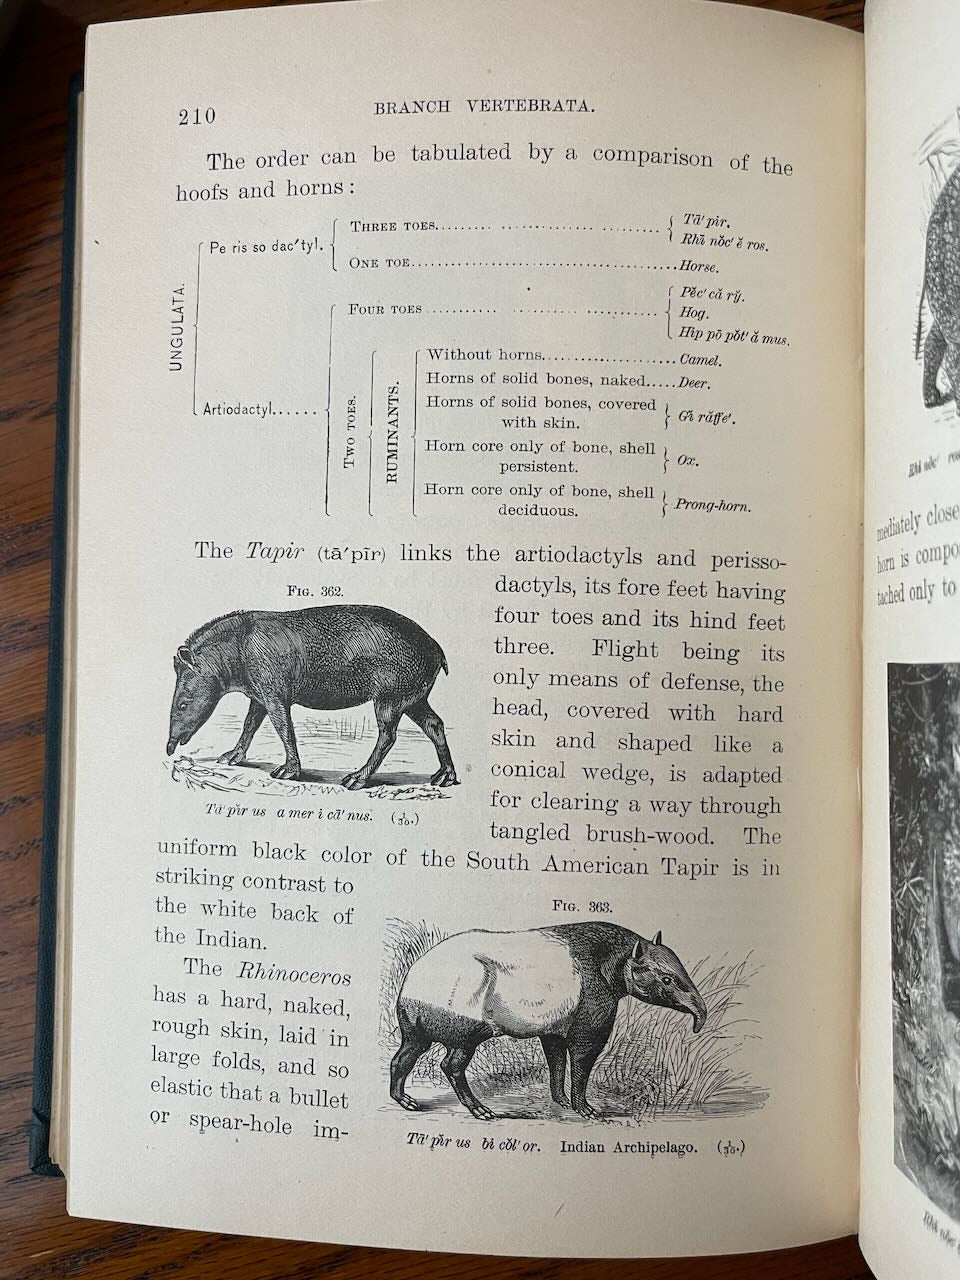 210
BRANCH VERTEBRATA.
The order can be tabulated by a comparison of the
hoofs and horns:
UNGULATA.
Pe ris so dac′tyl.
THREE TOES........ .................. Tā′pir.
Rhī nŏc′ĕ ros.
ONE TOE...................................Horse.
Artiodactyl......
FOUR TOES .......... ................ Pĕc′cȧ rў.
Hog.
Hip pō pŏt′ȧ mus.
TWO TOES.
RUMINANTS.
Without horns.................... Camel.
Horns of solid bones, naked.....Deer.
Horns of solid bones, covered
with skin. Ġĭ răffe′.
Horn core only of bone, shell
persistent. Ox.
Horn core only of bone, shell
deciduous. Prong-horn.
The Tapir (tā′pīr) links the artiodactyls and perisso-
FIG. 362.
dactyls, its fore feet having
four toes and its hind feet
three. Flight being its
only means of defense, the
head, covered with hard
skin and shaped like a
conical wedge, is adapted
for clearing a way through
tangled brush-wood. The
Tā′pĭr us a mer ĭ cā′nus. (1/30.)
uniform black color of the South American Tapir is in
striking contrast to
the white back of
the Indian.
FIG. 363.
The Rhinoceros
has a hard, naked,
rough skin, laid in
large folds, and so
elastic that a bullet
or spear-hole im-
Tā′pĭr us bī cŏl′or. Indian Archipelago. (1/30.)
mediately close
horn is compo
tached only to